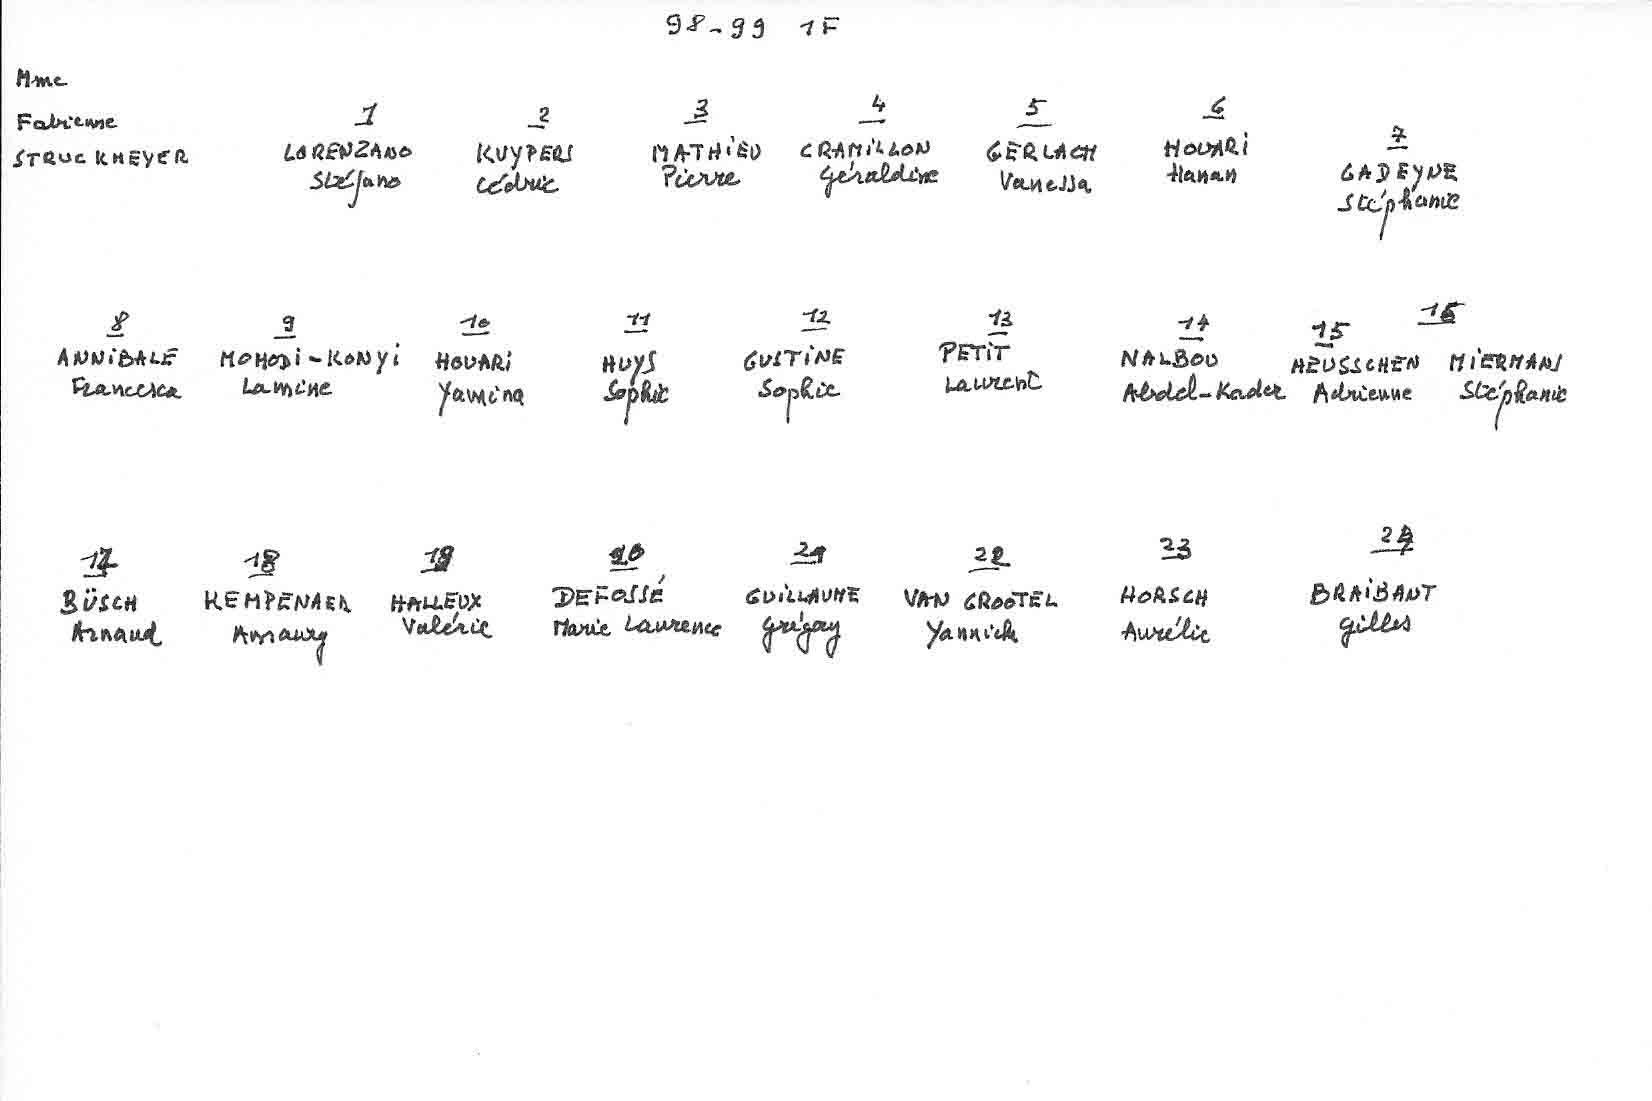 98-99 1F
Mme
Fabienne
STRUCKMEYER
1 2 3 4 5 6 7
LORENZANO KUYPERS MATHiEU CRAMiLLON GERLACH HOUARi GADEYNE
Stéfano Cédric Pierre Géraldine Vanessa Hanan Stéphanie
8 9 10 11 12 13 14 15 16
ANNiBALE MOMODi-KONYi HOUARi HUYS GUSTiNE PETiT NALBOU HEUSSCHEN MiERMANS
Francesca Lamine Yamina Sophie Sophie Laurent Abdel-Kader Adrienne Stéphanie
17 18 19 20 21 22 23 24
BÜSCH KEMPENAER HALLEUX DEFOSSÉ GUiLLAUME VAN GROOTEL HORSCH BRAiBANT
Arnaud Amaury Valérie Marie Laurence Grégory Yannick Aurélie Gilles